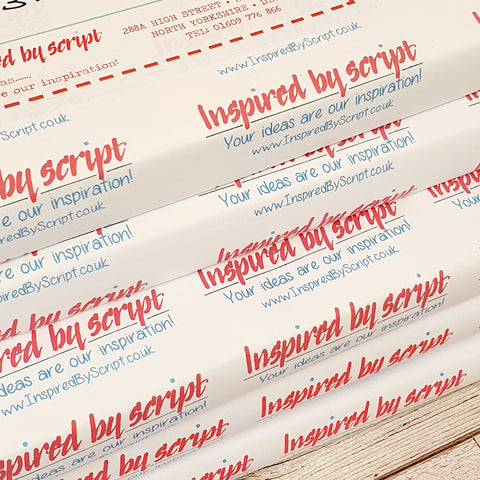 288A HIGH STREET •
NORTH YORKSHIRE,
TEL: 01609 776 866
Inspired by script
our inspiration!
www.InspiredByScript.co.uk
Inspired by script
Your ideas are our inspiration!
www.InspiredByScript.co.uk
Script.co.uk
by script
are our inspiration!
InspiredByScript.co.uk
Your ideas are our inspiration!
www.InspiredByScript.co.uk
are our inspiration!
InspiredByScript.co.uk
Inspired by script
Inspired by script
Your ideas are our inspiration!
www.InspiredByScript.co.uk
Inspired by script
ideas are our inspiration!
www.InspiredByScript.co.uk
Inspired by script
Your ideas are our inspiration!
Inspired by script
Inspired by script
are our inspiration!
Inspired by script
by script
script